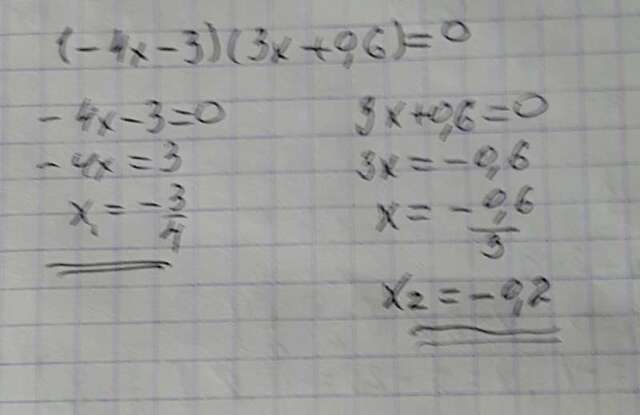 (-4x-3)(3x+0,6)=0
-4x-3=0
-4x=3
x₁=-3/4
3x+0,6=0
3x=-0,6
x=-0,6/3
x₂=-0,2